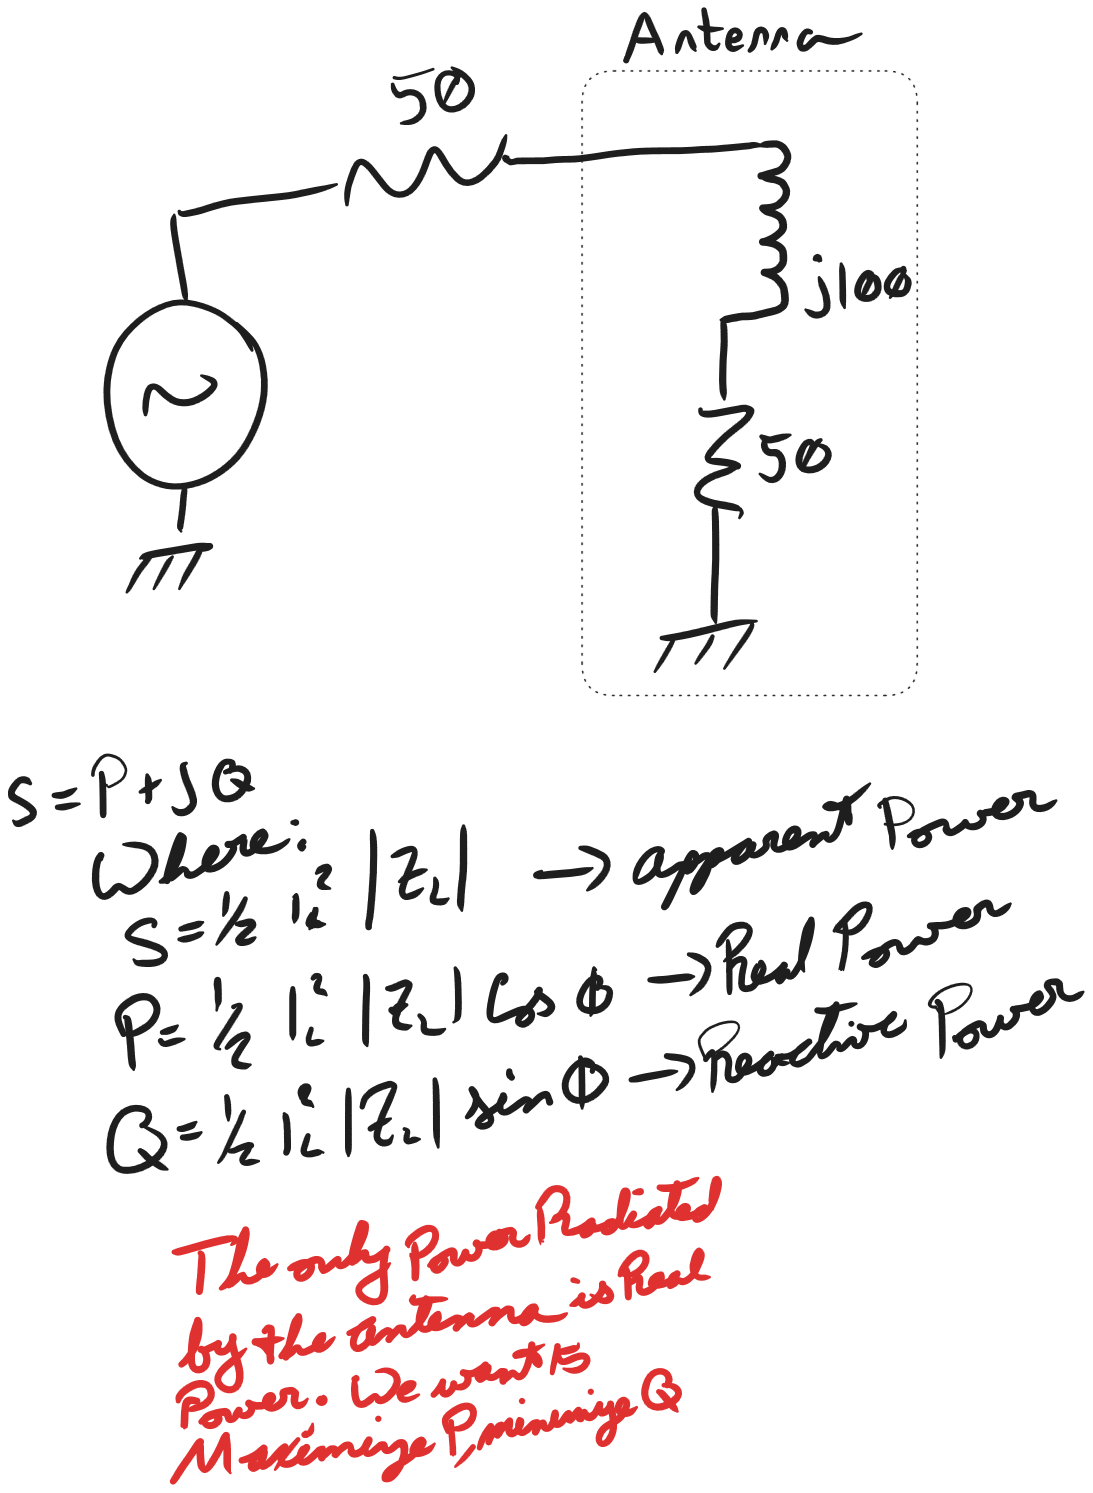 Antenna
50
j100
50
S = P + jQ
Where:
S = ½ I_L² |Z_L| → apparent Power
P = ½ I_L² |Z_L| Cos φ → Real Power
Q = ½ I_L² |Z_L| sin φ → Reactive Power
The only Power Radiated
by the antenna is Real
Power. We want to
Maximize P, minimize Q